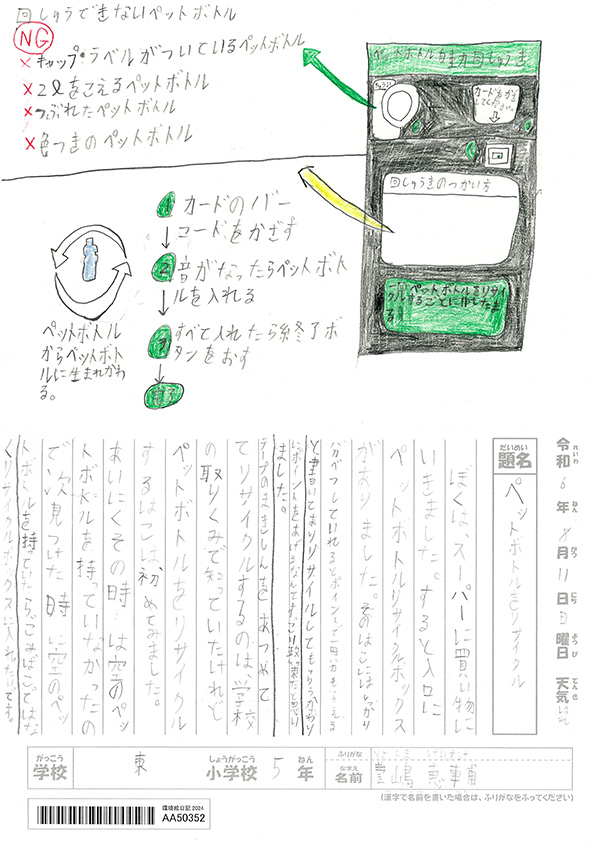 回しゅうできないペットボトル
NG
×キャップ・ラベルがついているペットボトル
×2ℓをこえるペットボトル
×つぶれたペットボトル
×色つきのペットボトル
ペットボトル自動回しゅうき
カードをかざしてください。
回しゅうきのつかい方
ペットボトルをリサイクルすることにしたよ
1 カードのバー
コードをかざす
2 音がなったらペットボト
ルを入れる
3 すべて入れたら終了ボ
タンをおす
ペットボトル
からペットボト
ルに生まれかわ
る。
令和6年8月11日日曜日 天気
れいわ ねん がつ にち ようび てんき
だいめい
題名 ペットボトルをリサイクル
ぼくはスーパーに買い物に
いきました。すると入口に
ペットボトルリサイクルボックス
がありました。そのはこにはしっかり
分べつしていれるとポイントして一円分もらえる
と書いてありリサイクルしてもらうかわり
にポイントをあげるなんてすごい取組だと思い
ました。
テープのまきしんをあつめて
てリサイクルするのは、学校
の取りくみで知っていたけれど
ペットボトルをリサイクル
するはこは初めてみました。
あいにくその時は空のペッ
トボトルを持っていなかったの
で、次見つけた時に空のペッ
トボトルを持っていたらごみばこではな
くリサイクルボックスに入れたいです。
がっこう しょうがっこう ねん ふりがな
学校 東 小学校 5年
なまえ
名前 豊嶋恵輔
(漢字で名前を書いた場合は、ふりがなをふってください)
環境絵日記2024
AA50352